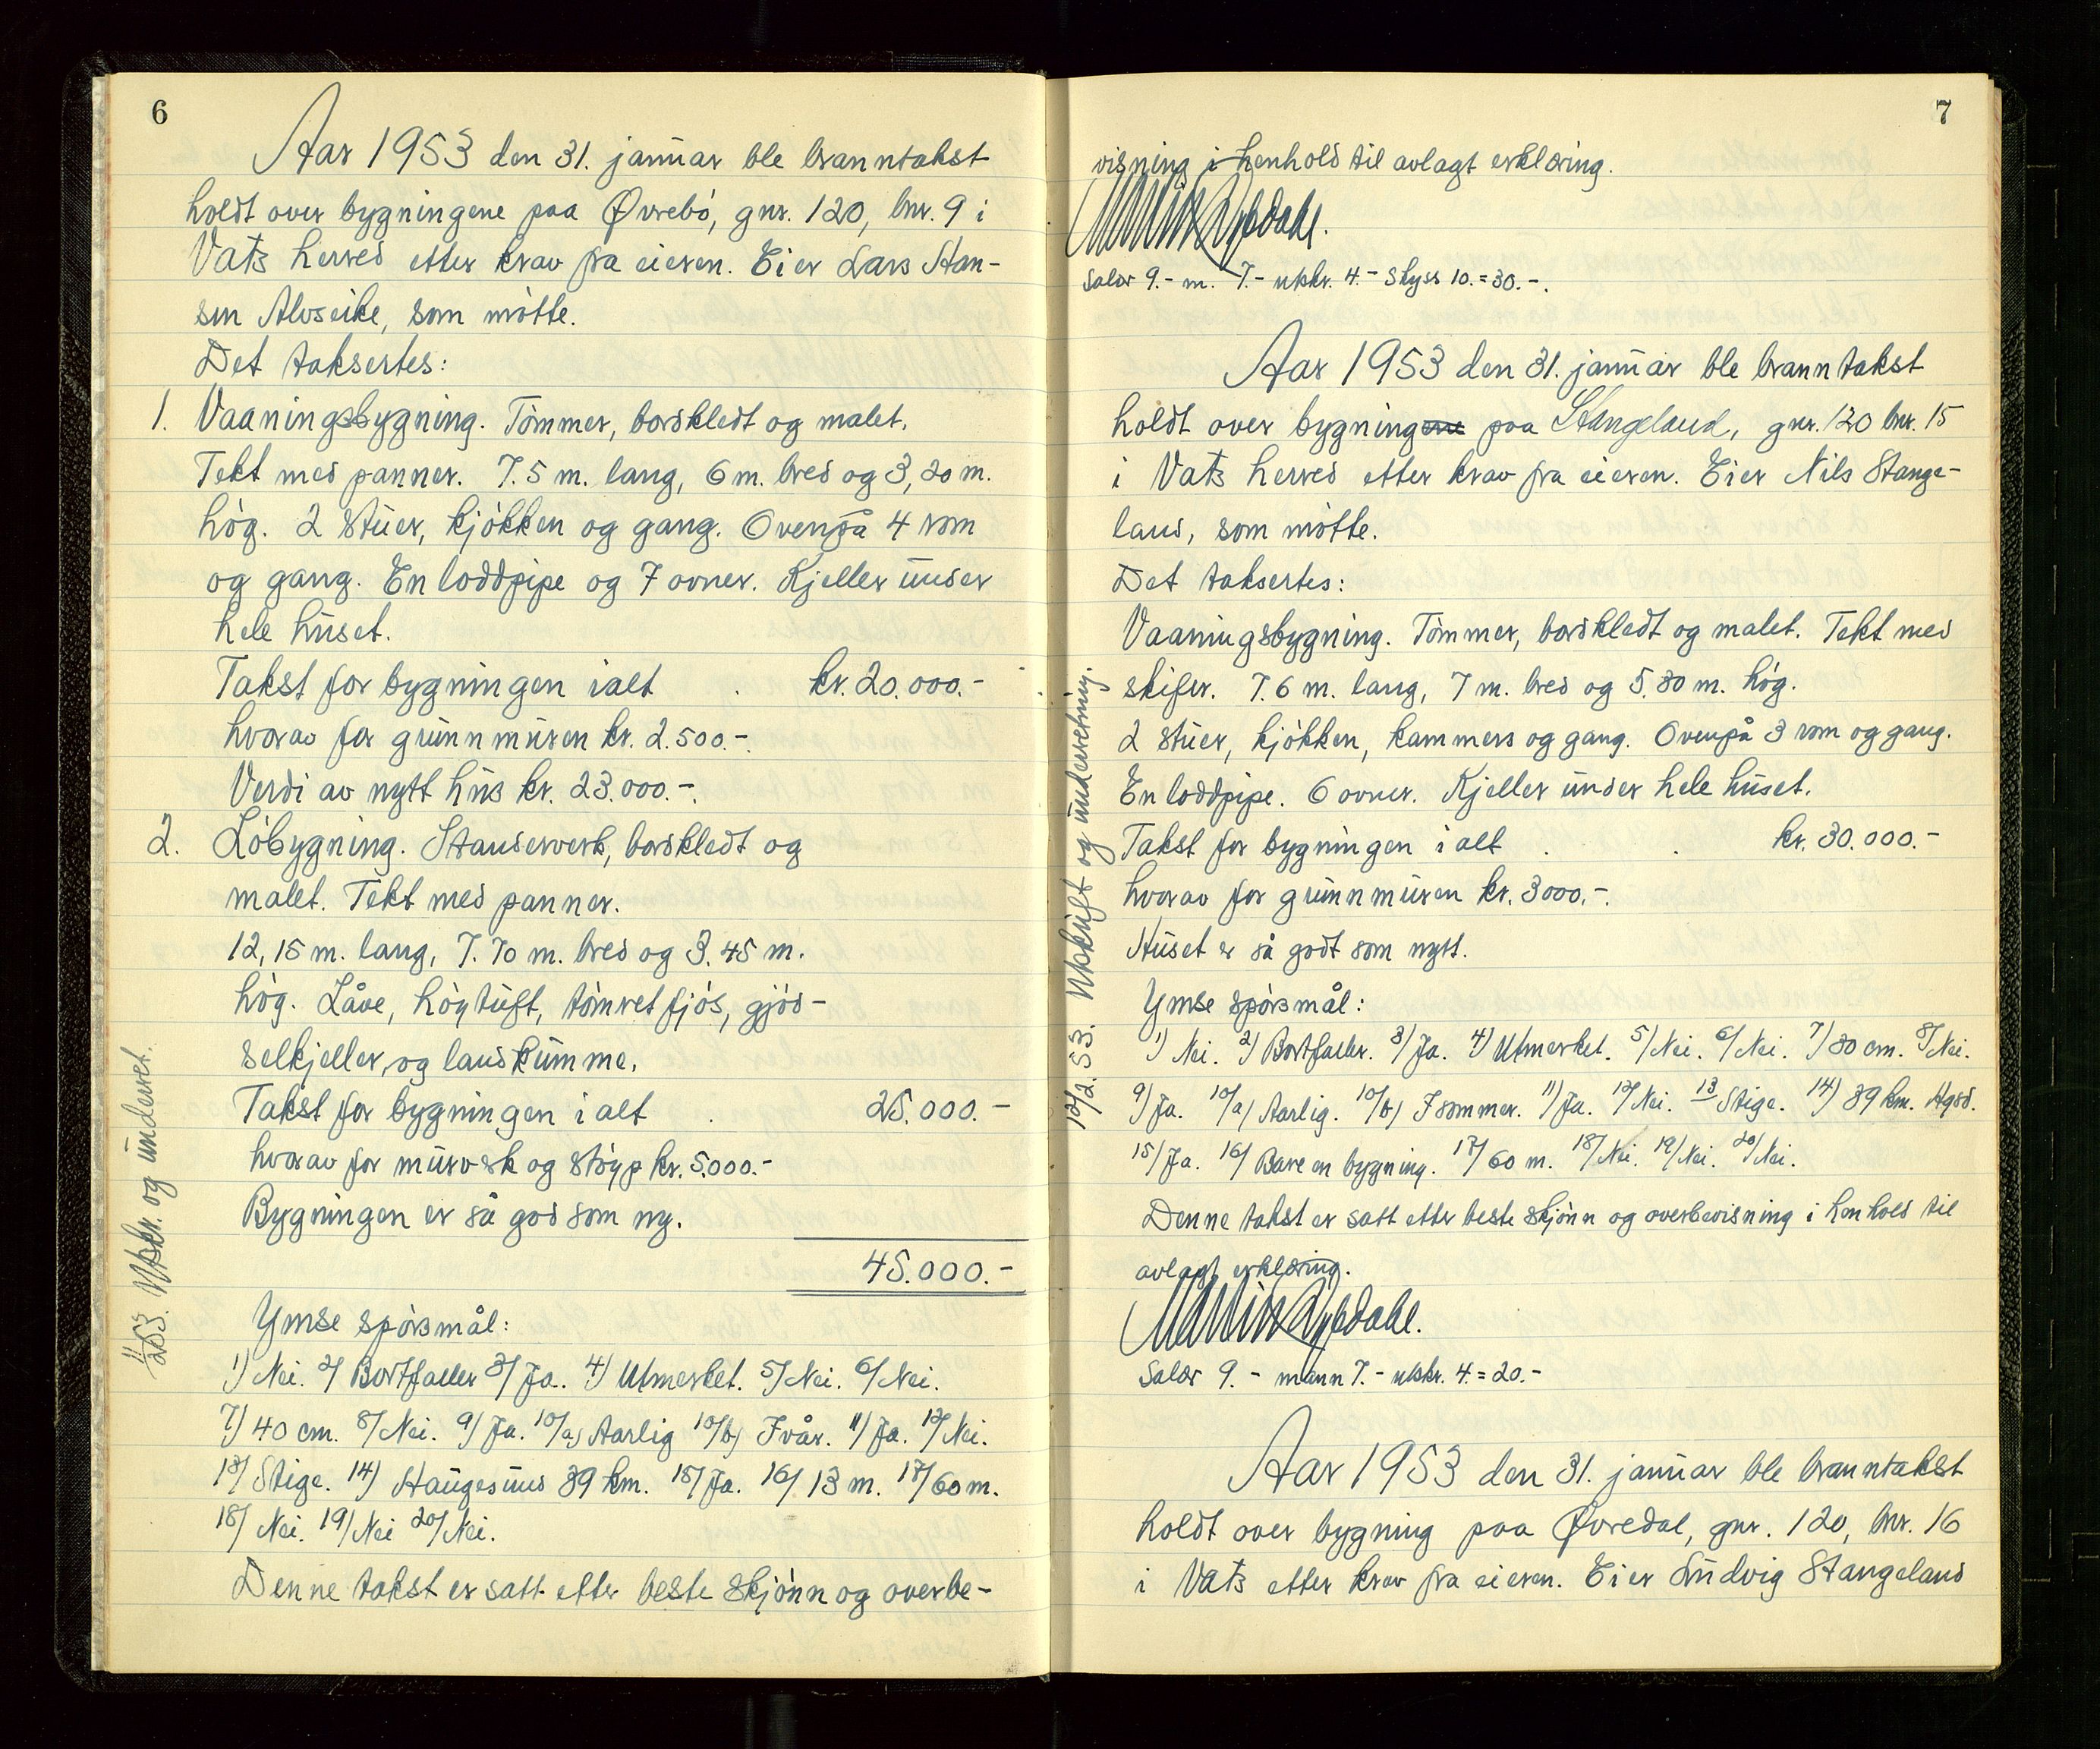 6
Aar 1953 den 31. januar ble branntakst
holdt over bygningene paa Øvrebó, gnr. 120, bnr. 9 i
Vats herred etter krav fra eieren. Eier Lars Han-
sen Alvseike, som mótte.
Det taksertes:
1. Vaaningsbygning. Tómmer, bordkledt og malet.
Tekt med panner. 7.5 m. lang, 6 m. bred og 3,20 m.
hóg. 2 stuer, kjókken og gang. Ovenpå 4 rom
og gang. En loddpipe og 7 ovner. Kjeller under
hele huset.
Takst for bygningen ialt . kr. 20.000.-
hvorav for grunnmuren kr. 2.500.-.
Verdi av nytt hus kr. 23.000.-.
2. Lóbygning. Stenderverk, bordkledt og
malet. Tekt med panner.
12,15 m. lang, 7.70 m. bred og 3.45 m.
hóg. Låve, hóytuft, tómret fjós, gjód-
selkjeller, og landkumme.
Takst for bygningen i alt . 25.000.-
hvorav for murverk og stóyp kr. 5.000.-
Bygningen er så god som ny.
45.000.-
Ymse spórsmål:
1) Nei. 2) Bortfaller 3) Ja. 4) Utmerket. 5) Nei. 6) Nei.
7) 40 cm. 8) Nei. 9) Ja. 10/a) Aarlig 10/b) I vår. 11) Ja. 12) Nei.
13) Stige. 14) Haugesund 39 km. 15) Ja. 16) 13 m. 17) 60 m.
18) Nei. 19) Nei 20) Nei.
Denne takst er satt etter beste skjónn og overbe-
11/2 53. Utskr. og underret.
7
visning i henhold til avlagt erklæring.
Salær 9.- m. 7.- utskr. 4.- Skyss 10.=30.-.
Aar 1953 den 31. januar ble branntakst
holdt over bygningene paa Stangeland, gnr. 120 bnr. 15
i Vats herred etter krav fra eieren. Eier Nils Stange-
land, som mótte.
Det taksertes:
Vaaningsbygning. Tómmer, bordkledt og malet. Tekt med
skifer. 7.6 m. lang, 7 m. bred og 5.80 m. hóg.
2 stuer, kjókken, kammers og gang. Ovenpå 3 rom og gang.
En loddpipe. 6 ovner. Kjeller under hele huset.
Takst for bygningen i alt . . kr. 30.000.-
hvorav for grunnmuren kr. 3000.-.
Huset er så godt som nytt.
Ymse spórsmål:
1) Nei. 2) Bortfaller. 3) Ja. 4) Utmerket. 5) Nei. 6) Nei. 7) 80 cm. 8) Nei.
9) Ja. 10/a) Aarlig. 10/b) I sommer. 11) Ja. 12) Nei. 13 Stige. 14) 39 km. Hgsd.
15) Ja. 16) Bare en bygning. 17) 60 m. 18) Nei. 19) Nei. 20) Nei.
Denne takst er satt etter beste skjónn og overbevisning i henhold til
avlagt erklæring.
Salær 9.- mann 7.- utskr. 4.=20.-
12/2.53. Utskrift og underretning.
Aar 1953 den 31. januar ble branntakst
holdt over bygning paa Øvredal, gnr. 120, bnr. 16
i Vats etter krav fra eieren. Eier Ludvig Stangeland